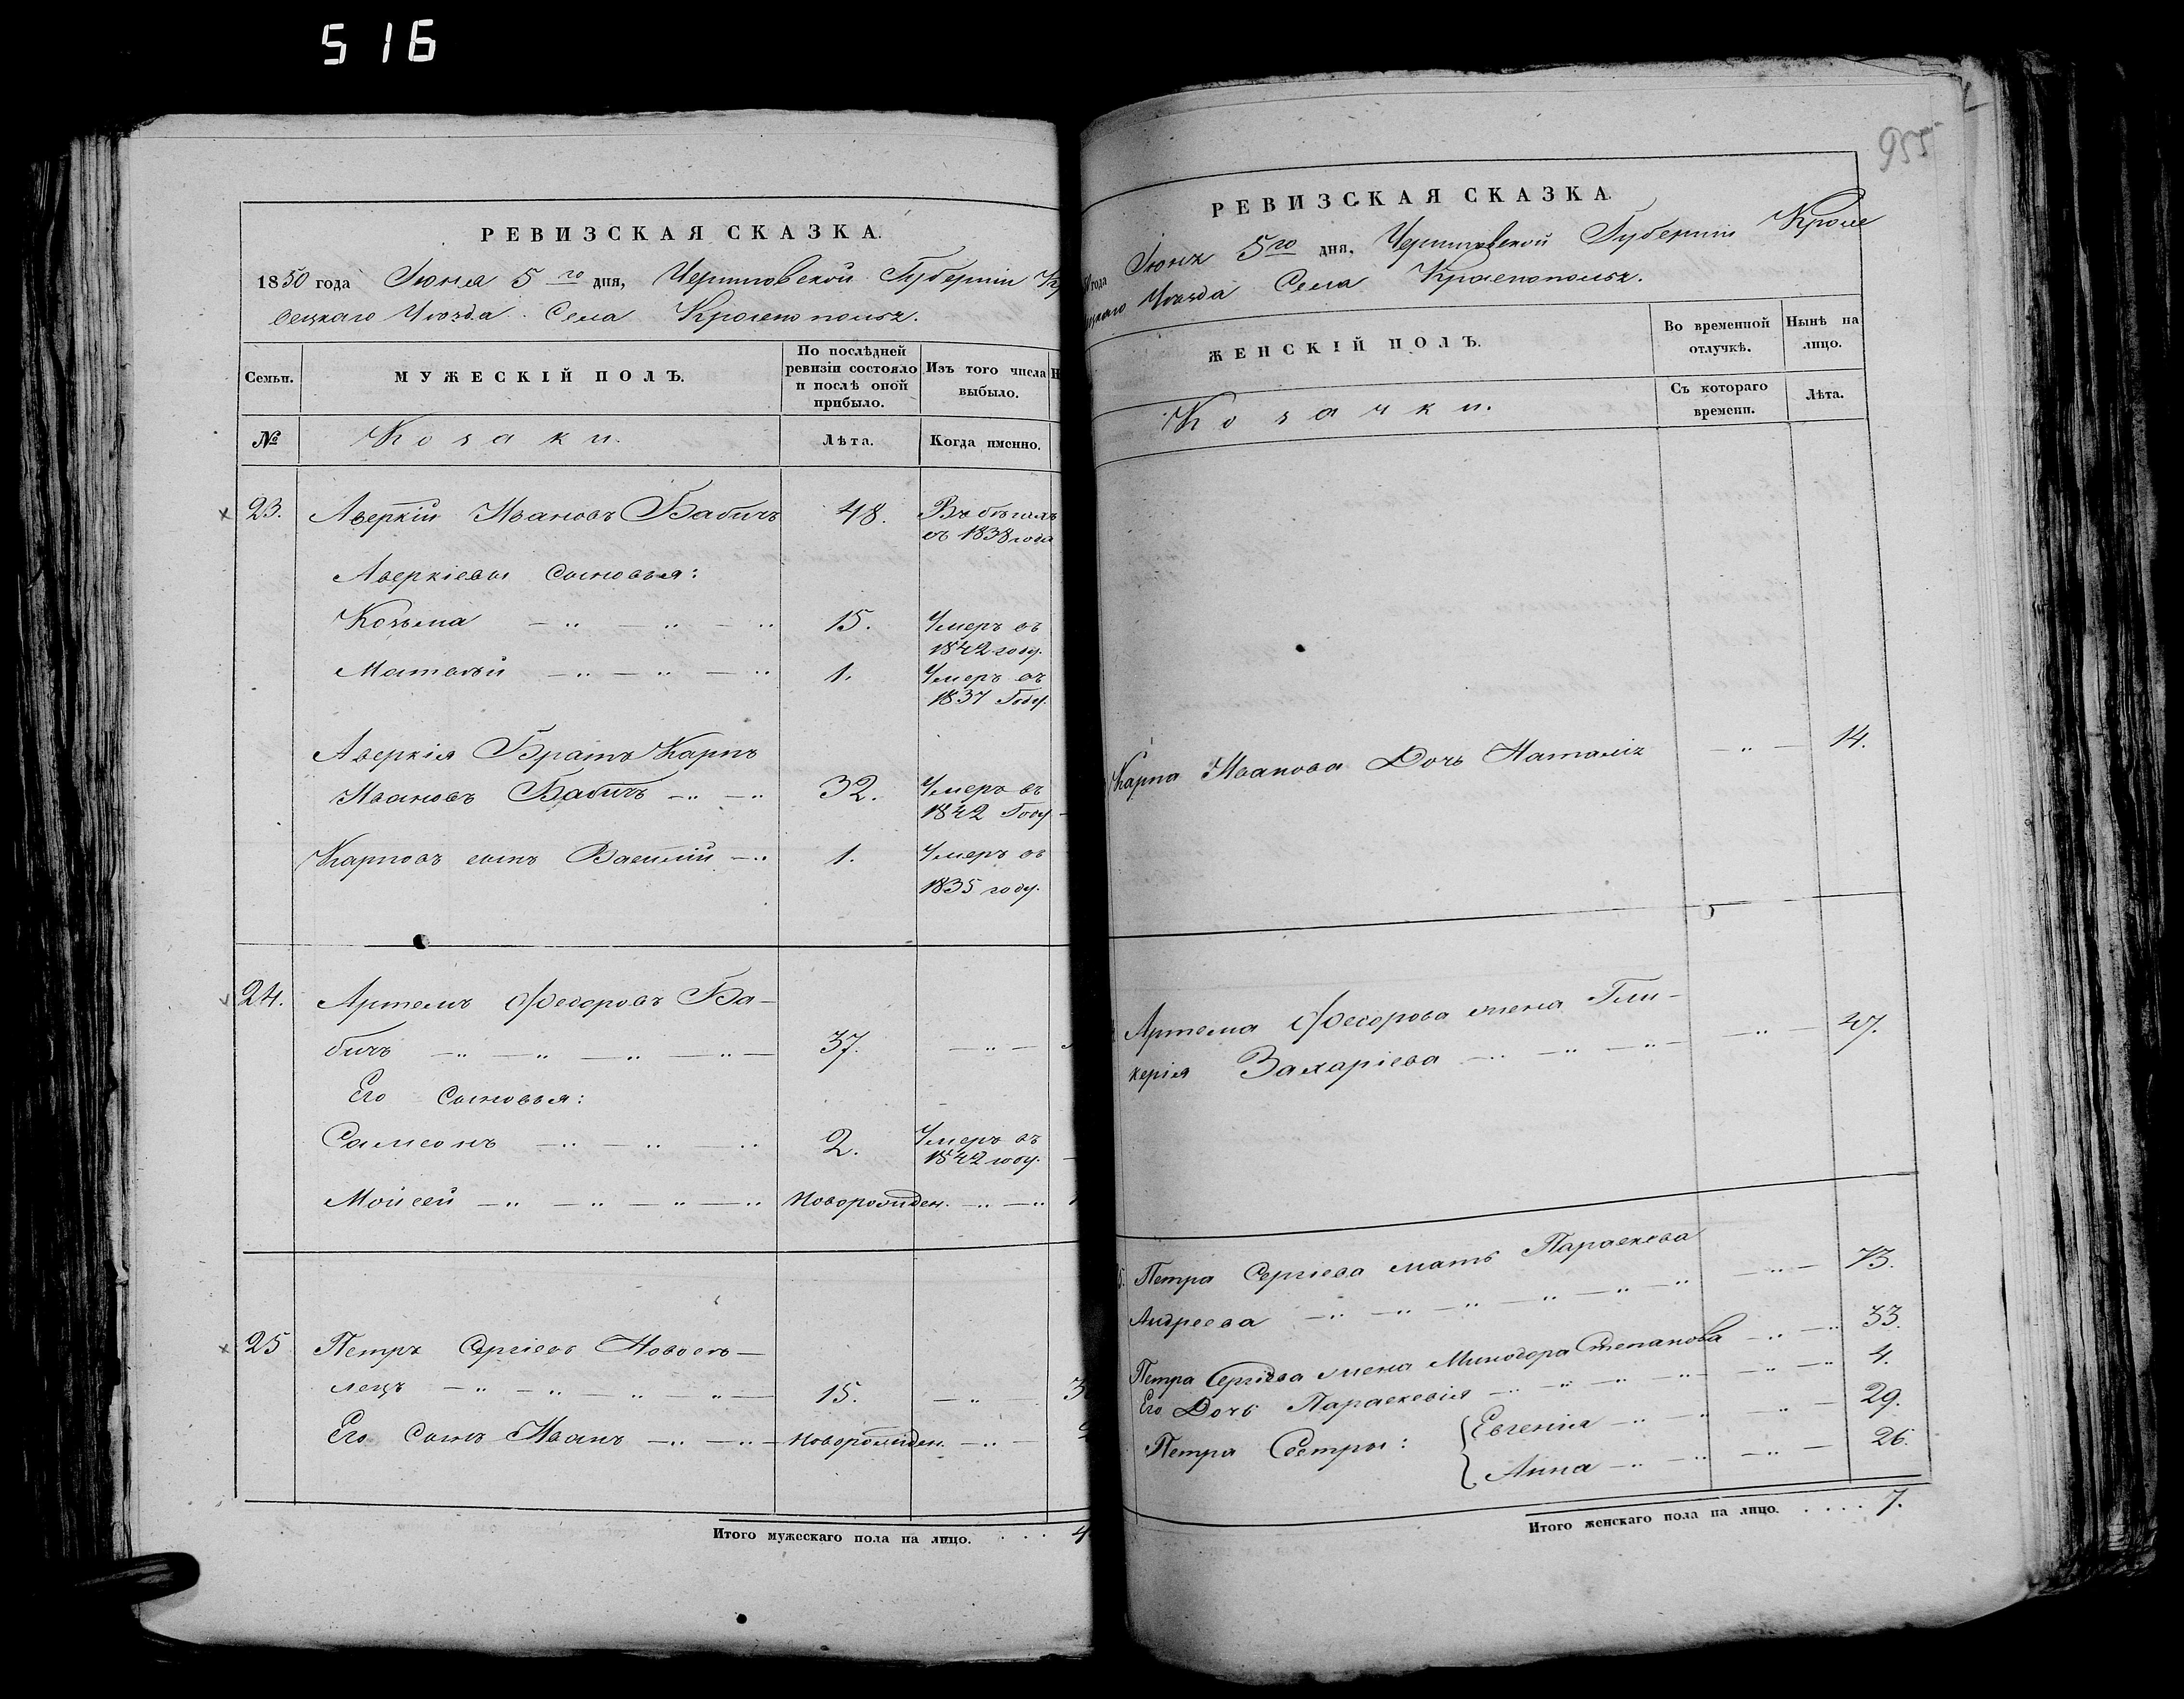 516
РЕВИЗСКАЯ СКАЗКА.
1850 года Іюня 5 го дня, Черниговской Губерніи Кр
вецкаго Уѣзда Села Краснополья.
Семьи.
МУЖЕСКІЙ ПОЛЪ.
По послѣдней
ревизіи состояло
и послѣ оной
прибыло.
Изъ того числа
выбыло.
№
Козаки.
Лѣта.
Когда именно.
23. Аверкій Ивановъ Бабичъ 48. Въ бѣгахъ
съ 1838 года
Аверкіевы Сыновья:
Козьма 15. Умеръ въ
1842 году.
Матвѣй 1. Умеръ въ
1837 Году.
Аверкія Братъ Карпъ
Ивановъ Бабичъ 32. Умеръ въ
1842 Году
Карповъ сынъ Василій 1. Умеръ въ
1835 году.
24. Артемъ Федоровъ Ба-
бичъ 37.
Его Сыновья:
Самсонъ 2. Умеръ въ
1842 году.
Мойсей Новорожден.
25 Петръ Сергіевъ
лецъ 15.
Его Сынъ Иванъ Новорожден.
Итого мужескаго пола на лицо. . . . 4
955
РЕВИЗСКАЯ СКАЗКА.
года Іюня 5го дня, Черниговской Губерніи Кроле
вецкаго Уѣзда Села Краснополья.
ЖЕНСКІЙ ПОЛЪ.
Во временной
отлучкѣ.
Нынѣ на
лицо.
Козачки.
Съ котораго
времени.
Лѣта.
Карпа Иванова Дочь Наталія 14.
Артема Федорова жена Гли-
керія Захаріева 47.
Петра Сергіева мать Параскева
Андреева 73.
Петра Сергіева жена Минодора Степанова 33.
Его Дочь Параскевія 4.
Петра Сестры: Евгенія 29.
Анна 26.
Итого женскаго пола на лицо. . . . . 7.